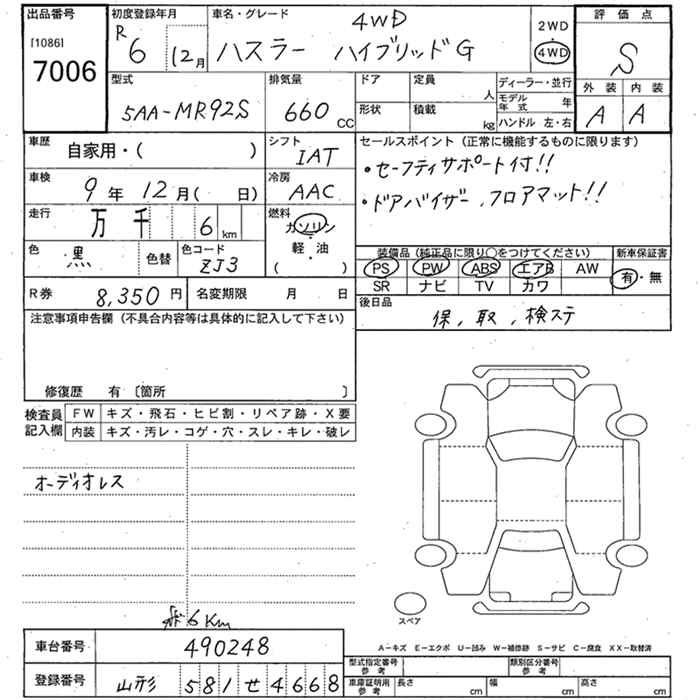 出品番号
[1086]
7006
初度登録年月
R 6 12月
車名・グレード
4WD
ハスラー ハイブリッドG
2WD
・
4WD
評価点
S
外装 内装
A A
型式
5AA-MR92S
排気量
660 CC
ドア
形状
定員 人
積載 kg
ディーラー・並行
モデル年式 年
ハンドル 左・右
車歴
自家用・( )
シフト
IAT
車検
9年 12月( 日)
冷房
AAC
走行
万 千 6 km
燃料
ガソリン
・
軽・油
( )
色
黒
色替
色コード
ZJ3
セールスポイント (正常に機能するものに限ります)
・セーフティサポート付!!
・ドアバイザー,フロアマット!!
装備品 (純正品に限り○をつけてください)
PS PW ABS エアB AW
SR ナビ TV カワ
新車保証書
有・無
R券 8,350 円
名変期限 月 日
後日品
保,取,検ステ
注意事項申告欄 (不具合内容等は具体的に記入して下さい)
修復歴 有 〔箇所 〕
検査員記入欄
FW キズ・飛石・ヒビ割・リペア跡・X要
内装 キズ・汚レ・コゲ・穴・スレ・キレ・破レ
オーディオレス
6Km
スペア
A−キズ E−エクボ U−凹み W−補修跡 S−サビ C−腐食 XX−取替済
車台番号 490248
登録番号 山形 581 せ 4668
型式指定番号 参考
類別区分番号 参考
車庫証明用 参考
長さ cm
幅 cm
高さ cm